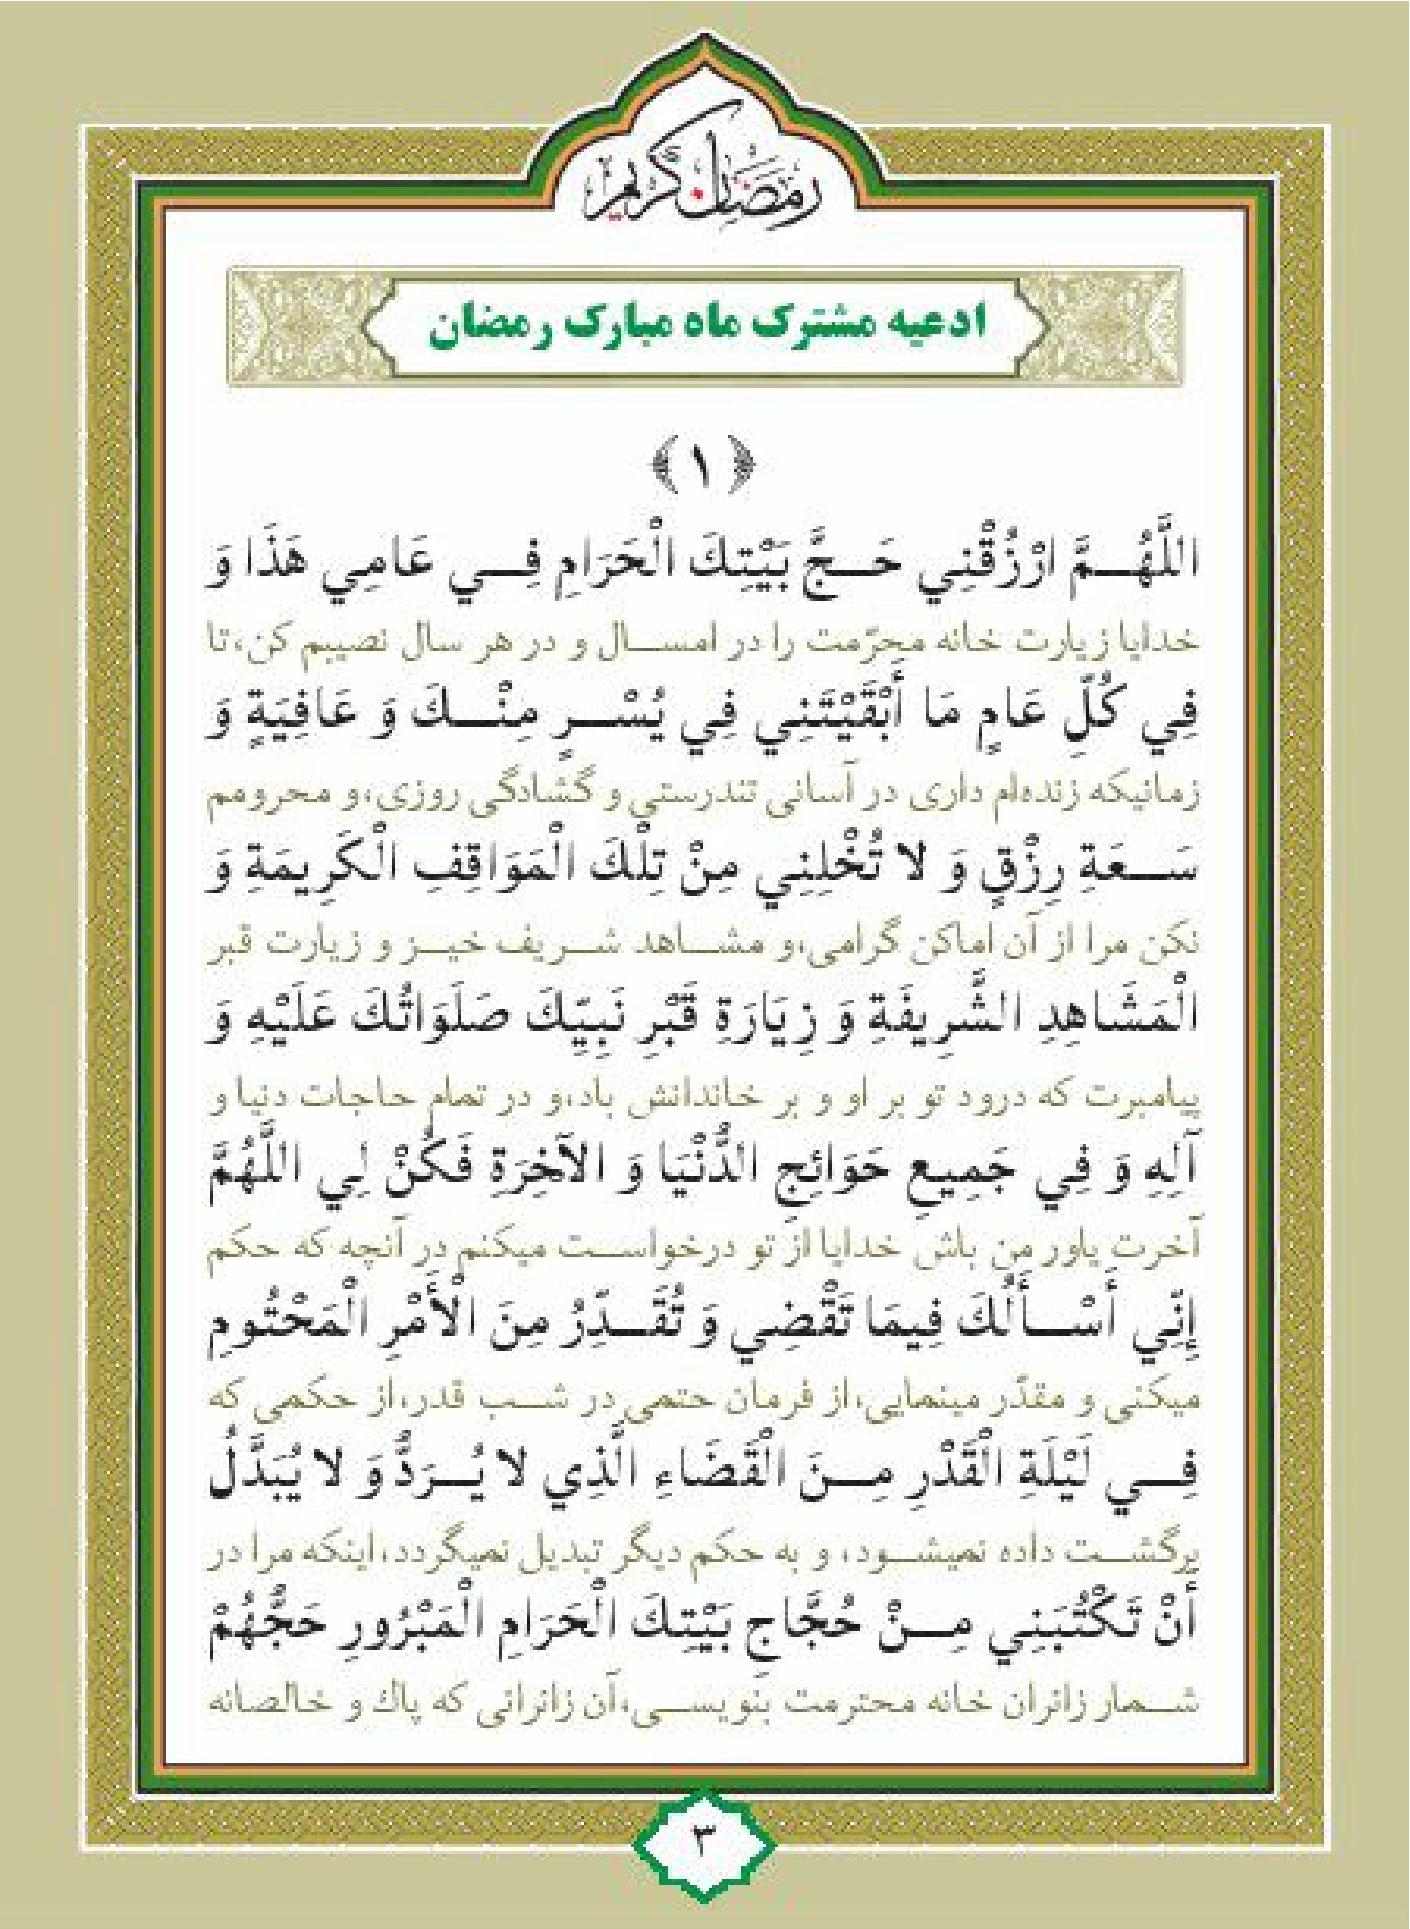 رمضان كريم
ادعیه مشترک ماه مبارک رمضان
﴿۱﴾
اللَّهُمَّ ارْزُقْنِي حَجَّ بَيْتِكَ الْحَرَامِ فِي عَامِي هَذَا وَ
خدایا زیارت خانه محرّمت را در امسال و در هر سال نصیبم کن،تا
فِي كُلِّ عَامٍ مَا أَبْقَيْتَنِي فِي يُسْرٍ مِنْكَ وَ عَافِيَةٍ وَ
زمانیکه زنده‌ام داری در آسانی تندرستی و گشادگی روزی،و محرومم
سَعَةِ رِزْقٍ وَ لا تُخْلِنِي مِنْ تِلْكَ الْمَوَاقِفِ الْكَرِيمَةِ وَ
نکن مرا از آن اماکن گرامی،و مشاهد شریف خیز و زیارت قبر
الْمَشَاهِدِ الشَّرِيفَةِ وَ زِيَارَةِ قَبْرِ نَبِيِّكَ صَلَوَاتُكَ عَلَيْهِ وَ
پیامبرت که درود تو بر او و بر خاندانش باد،و در تمام حاجات دنیا و
آلِهِ وَ فِي جَمِيعِ حَوَائِجِ الدُّنْيَا وَ الآخِرَةِ فَكُنْ لِي اللَّهُمَّ
آخرت یاور من باش خدایا از تو درخواست میکنم در آنچه که حکم
إِنِّي أَسْأَلُكَ فِيمَا تَقْضِي وَ تُقَدِّرُ مِنَ الْأَمْرِ الْمَحْتُومِ
میکنی و مقدّر مینمایی،از فرمان حتمی در شب قدر،از حکمی که
فِي لَيْلَةِ الْقَدْرِ مِنَ الْقَضَاءِ الَّذِي لا يُرَدُّ وَ لا يُبَدَّلُ
برگشت داده نمیشود، و به حکم دیگر تبدیل نمیگردد،اینکه مرا در
أَنْ تَكْتُبَنِي مِنْ حُجَّاجِ بَيْتِكَ الْحَرَامِ الْمَبْرُورِ حَجُّهُمْ
شمار زائران خانه محترمت بنویسی،آن زائرانی که پاك و خالصانه
۳